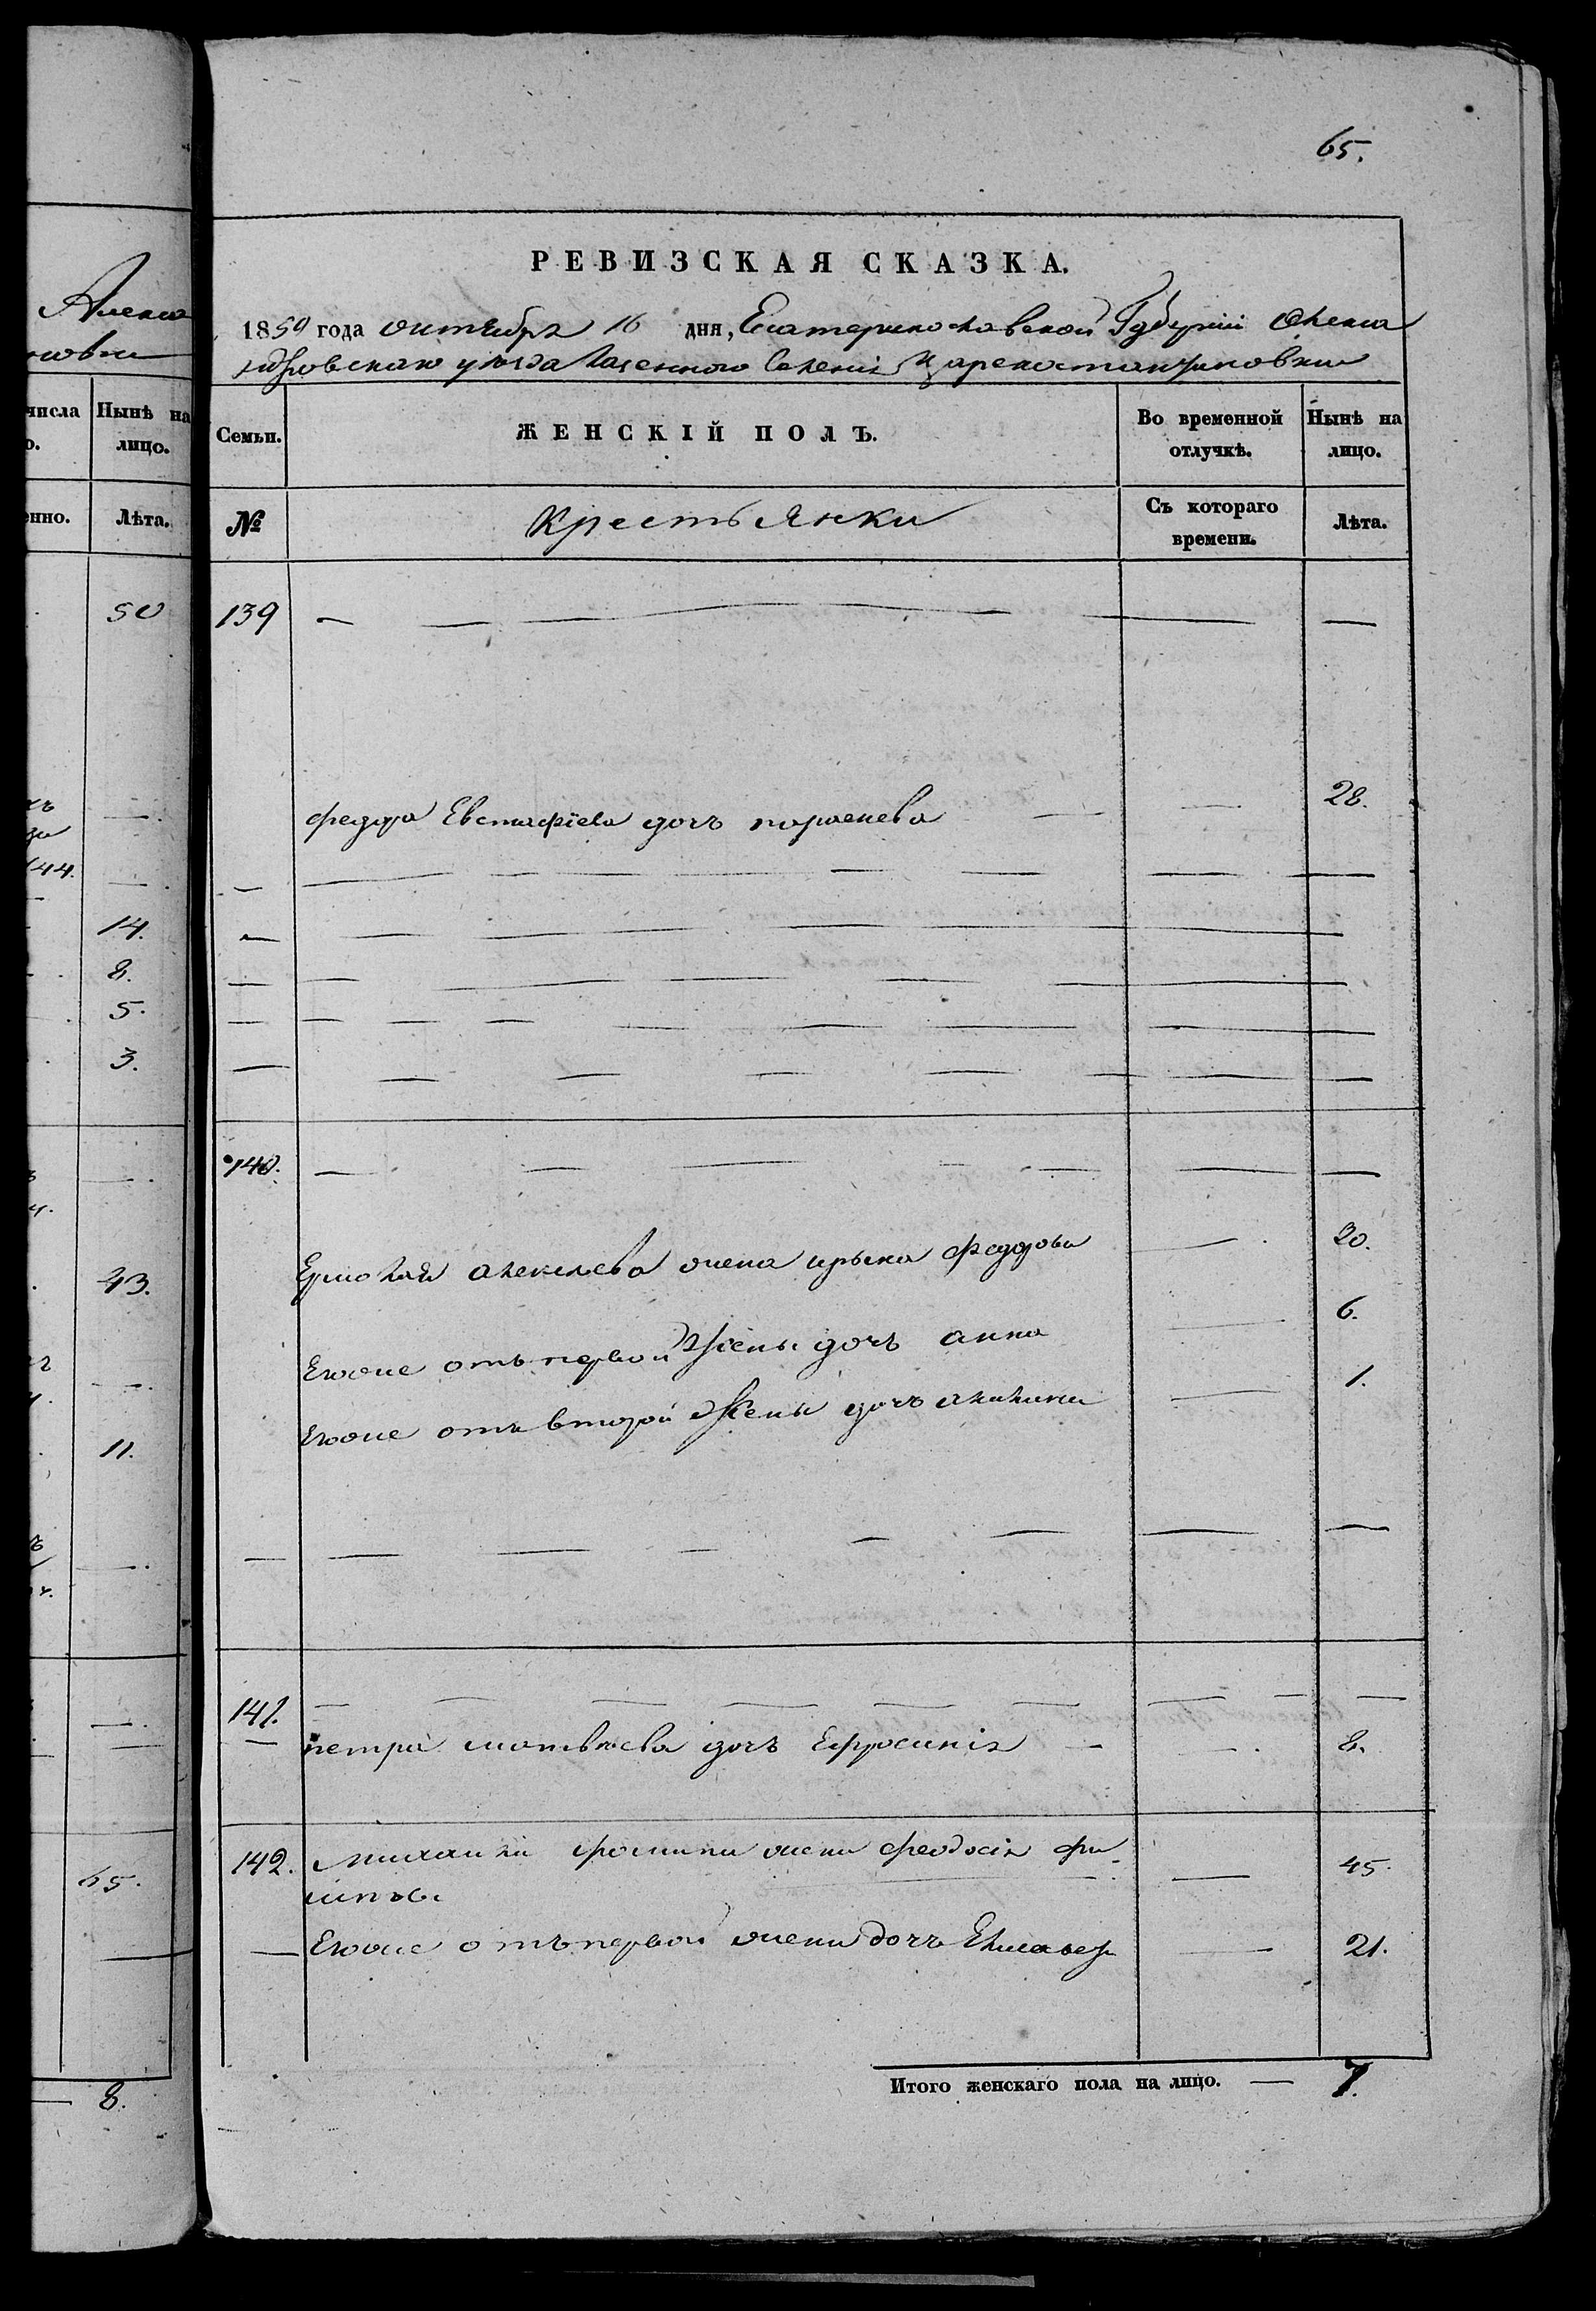 Алекса
новки
числа
о.
Нынѣ на
лицо.
енно.
Лѣта.
50
144.
14.
8.
5.
3.
43.
11.
65.
8.
65.
РЕВИЗСКАЯ СКАЗКА.
1859 года октября 16 дня, Екатеринославской Губернiи Алекса
ндровскаго уѣзда казенного селенiя Цареконстантиновки
Семьи.
ЖЕНСКIЙ ПОЛЪ.
Во временной
отлучкѣ.
Нынѣ на
лицо.
№
Крестьянки
Съ котораго
времени.
Лѣта.
139
федора Евстафiева дочь 28.
140.
Ермолая алексѣева жена ирына федорова 30.
Еюоже отъ первой Жены дочь анна 6.
Еюоже отъ второй Жены дочь акилина 1.
141.
петра матвѣева дочь Ефросинiя 8.
142. михаила фомина жена феодосiя фи
липова 45.
Еюоже отъ первой жены дочь Елисавета 21.
Итого женскаго пола на лицо. — 7.